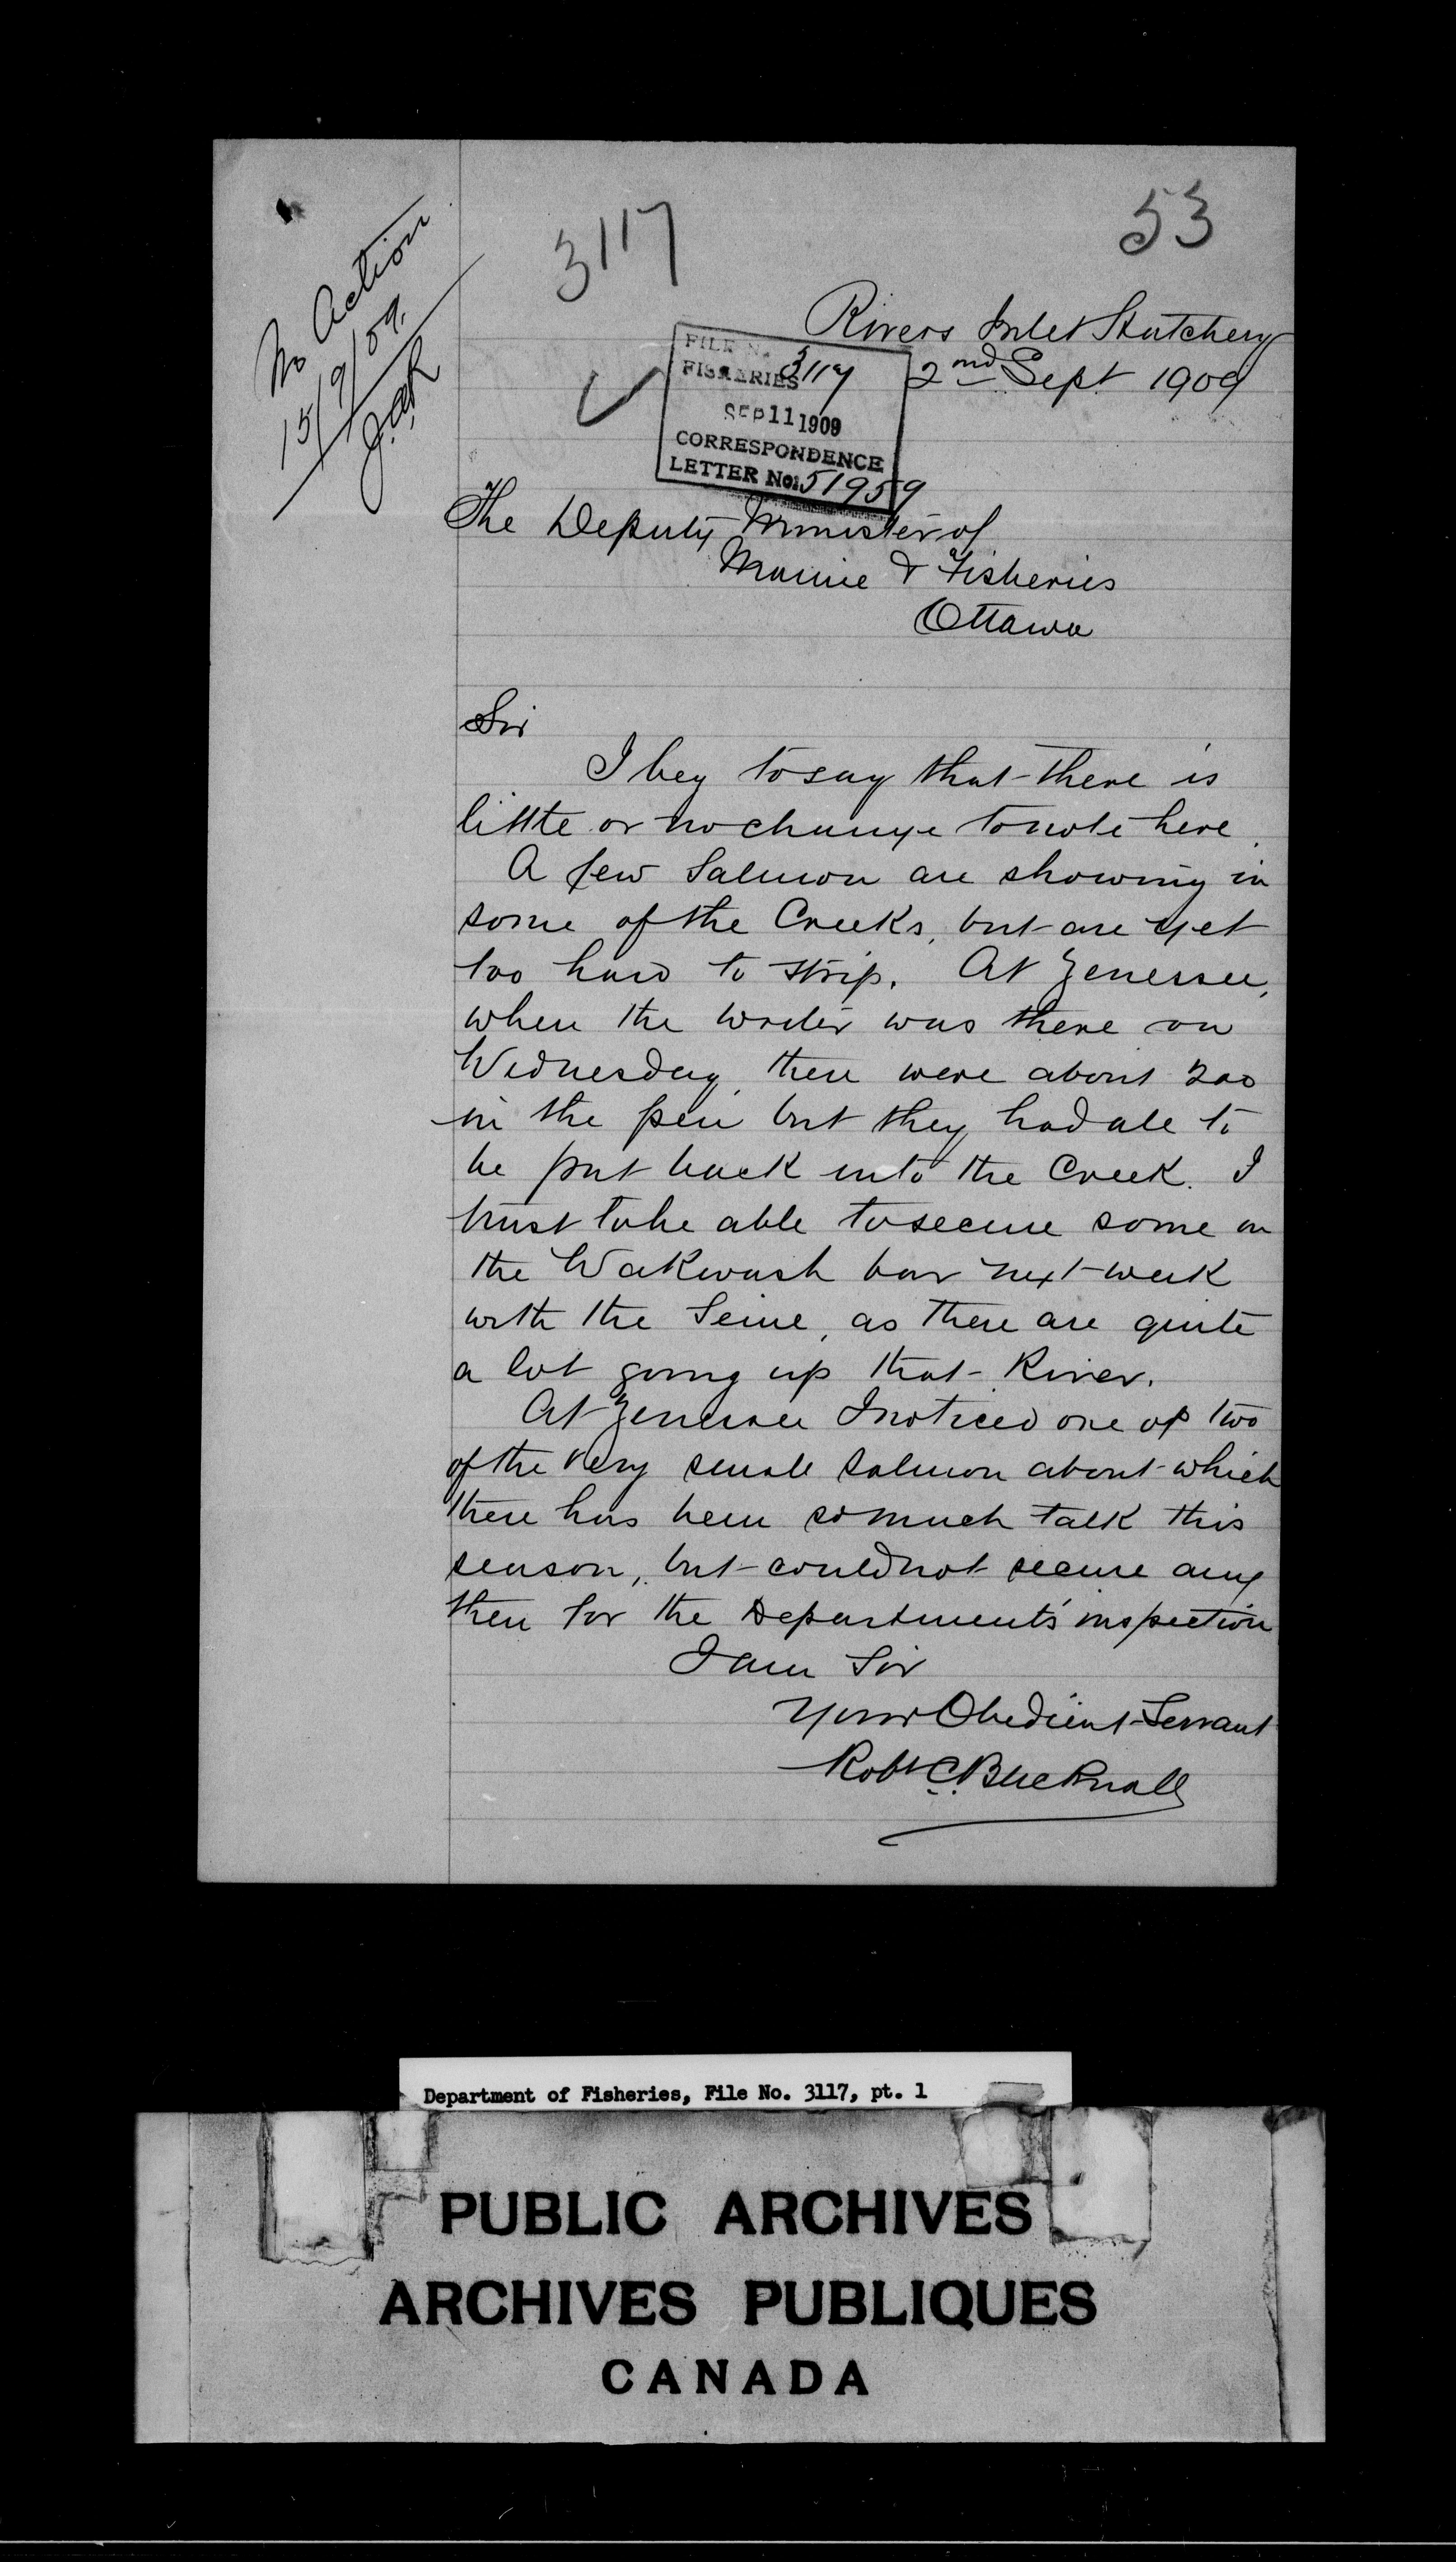 53
3117
No Action
15/9/09.
Rivers Inlet Hatchery
2nd Sept 1909
FILE No. 3117
FISHERIES
SEP 11 1909
CORRESPONDENCE
LETTER No. 51959
The Deputy Minister of
Marine & Fisheries
Ottawa
Sir
I beg to say that there is
little or no change to note here.
A few Salmon are showing in
some of the Creeks, but are yet
too hard to strip. At Genessee,
when the writer was there on
Wednesday, there were about 200
in the pen but they had all to
be put back into the Creek. I
trust to be able to secure some on
the Wakwash bar next week
with the Seine, as there are quite
a lot going up that River.
At Genessee I noticed one or two
of the very small salmon about which
there has been so much talk this
season, but could not secure any
then for the Department's inspection
I am Sir
Your Obedient Servant
Robt C. Bucknall
Department of Fisheries, File No. 3117, pt. 1
PUBLIC ARCHIVES
ARCHIVES PUBLIQUES
CANADA